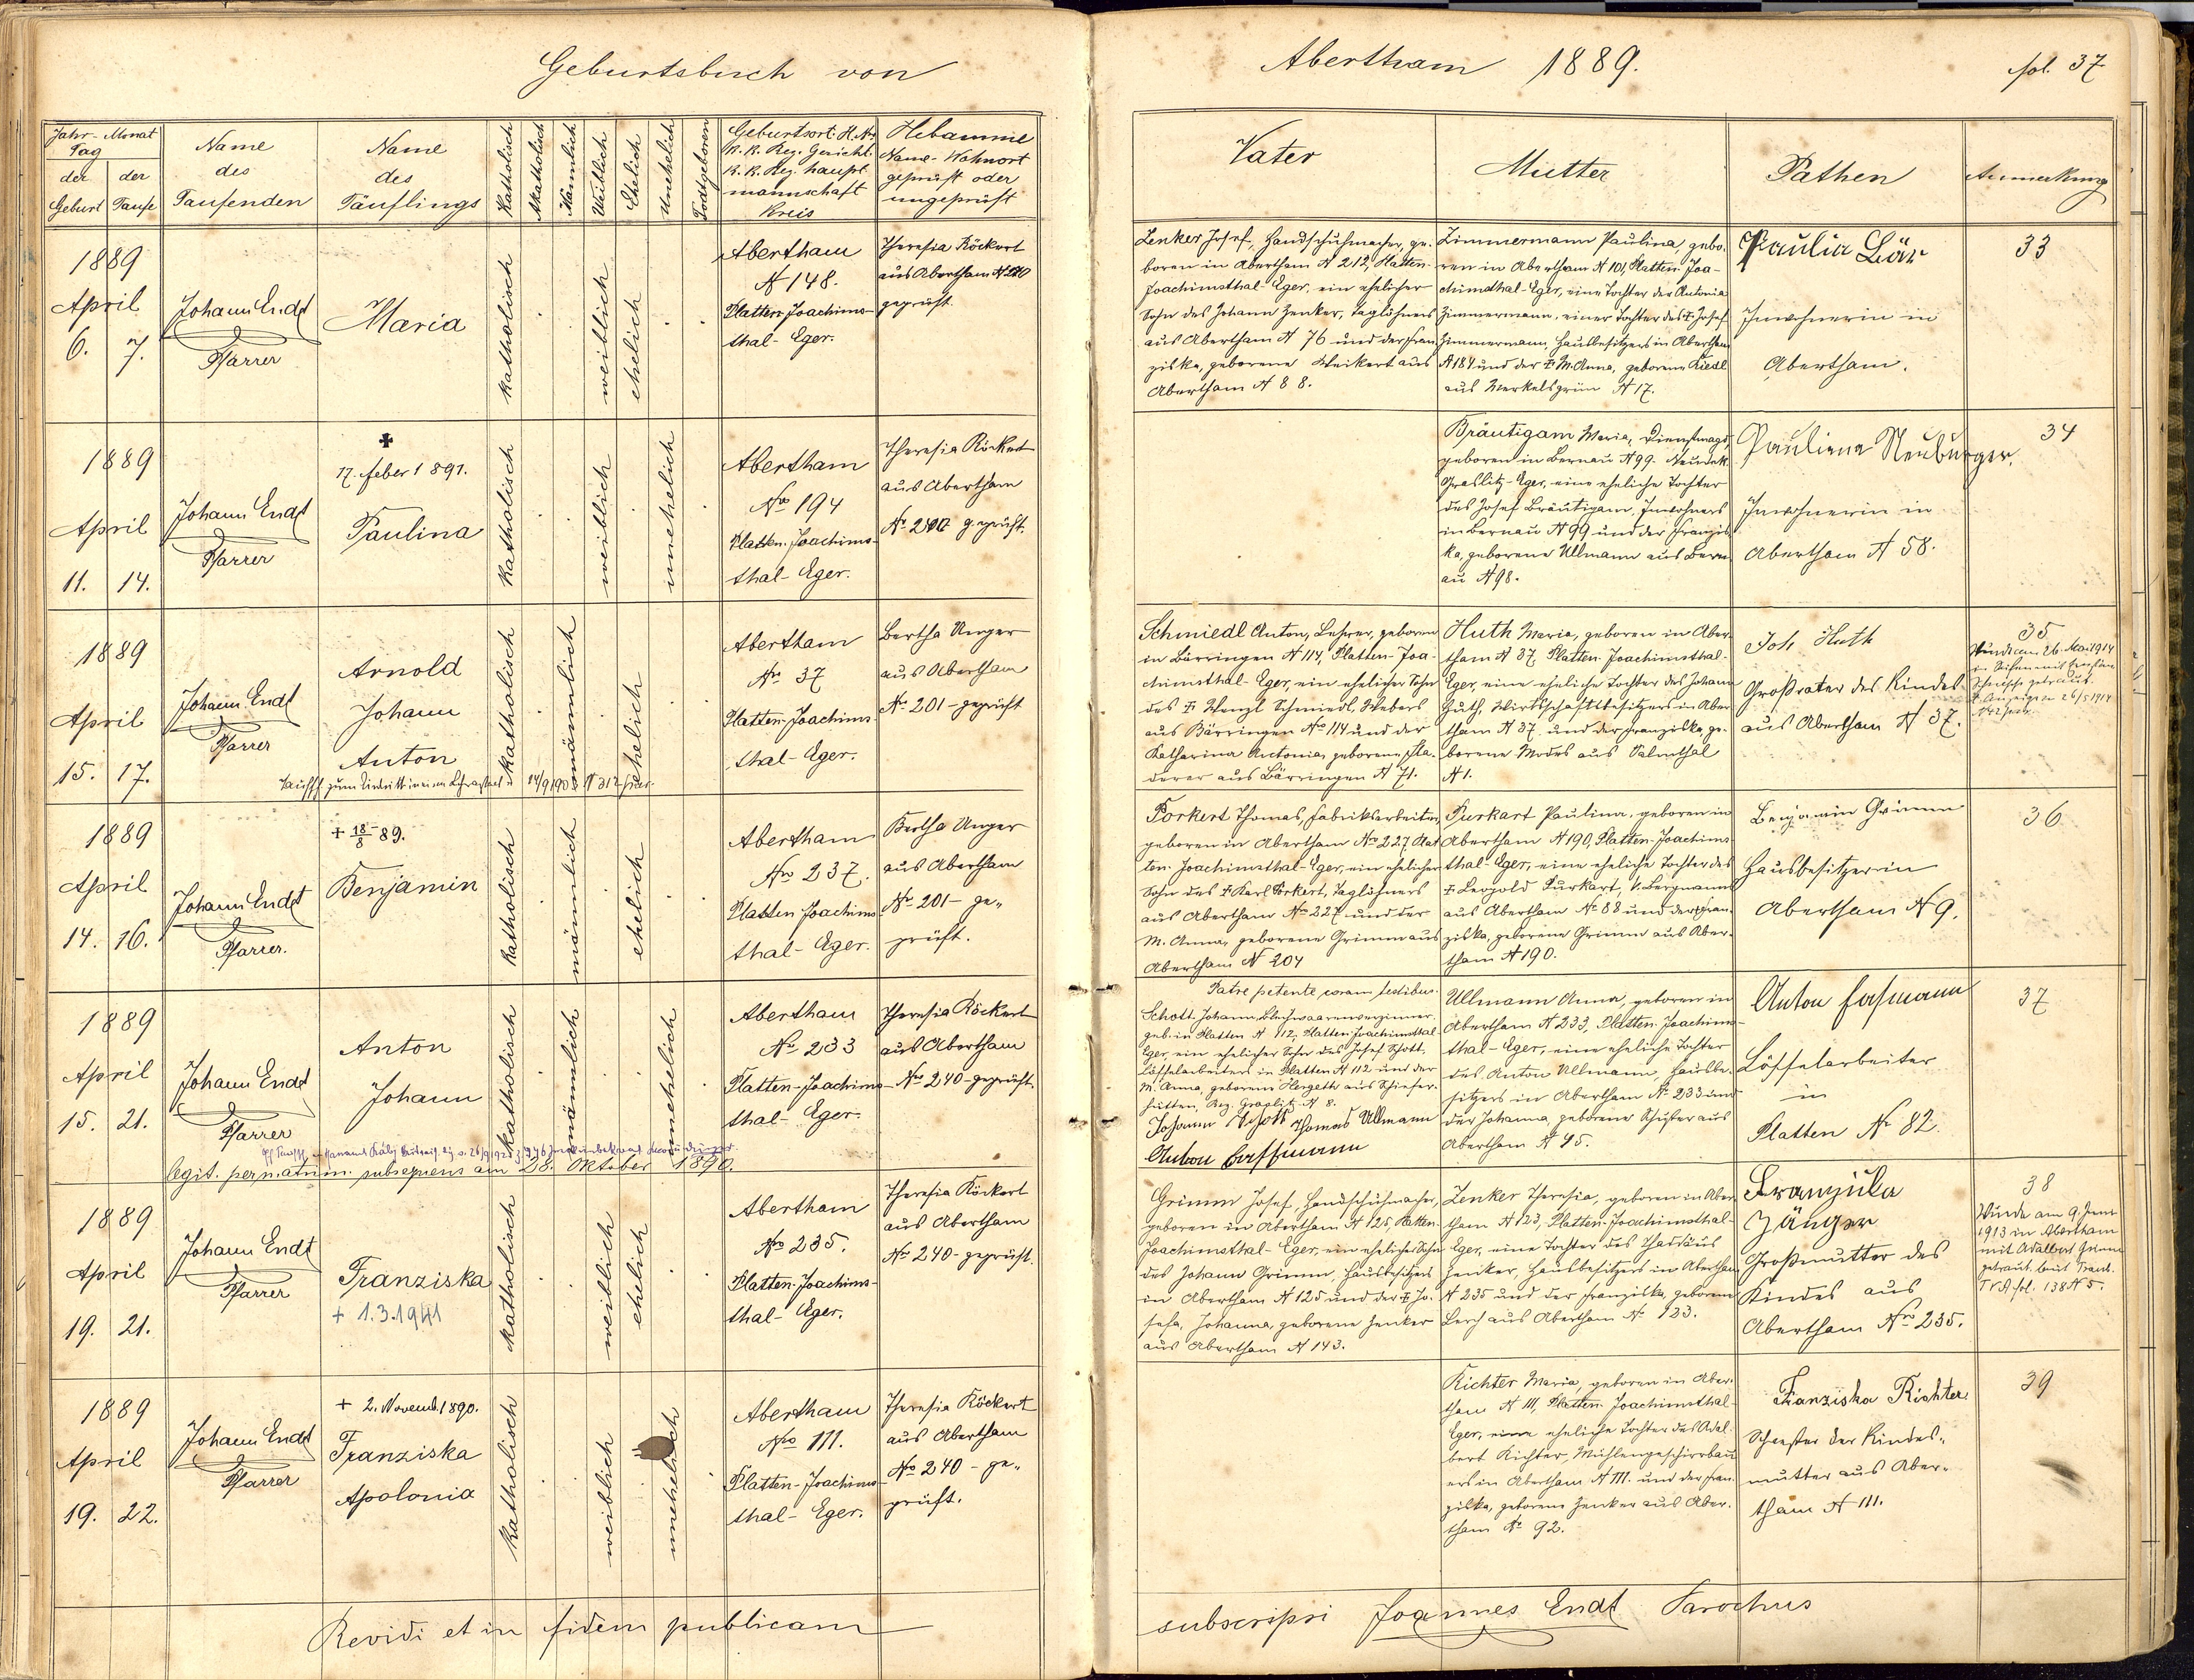 Geburtsbuch von
Abertham 1889.
fol. 37
Jahr - Monat
Tag
der Geburt
der Taufe
Name
des
Taufenden
Name
des
Täuflings
Katholisch
Akatholisch
Männlich
Weiblich
Ehelich
Unehelich
Todtgeboren
Geburtsort H. Nr
K. K. Bez. Gericht.
K. K. Bez. haupt
mannschaft
Kreis
Hebamme
Name - Wohnort
geprüft oder
ungeprüft
Vater
Mutter
Pathen
Anmerkung
1889
April
6. 7.
Johann Endt
Pfarrer
Maria
katholisch
weiblich
ehelich
Abertham
N 148.
Platten-Joachims-
thal-Eger.
Theresia Röckert
aus Abertham N 240
geprüft.
Zenker Josef, Handschuhmacher, ge-
boren in Abertham N 212, Platten-
Joachimsthal-Eger, ein ehelicher
Sohn des Johann Zenker, Taglöhners
aus Abertham N 76 und der Fran-
ziska, geborene Weikert aus
Abertham N 88.
Zimmermann Paulina, gebo-
ren in Abertham N 101, Platten-Joa-
chimsthal-Eger, eine Tochter der Antonia
Zimmermann, einer Tochter des † Josef
Zimmermann, Hausbesitzers in Abertham
N 184 und der † M. Anna, geborene Riedl
aus Merkelsgrün N 17.
Paulia Bär
Inwohnerin in
Abertham.
33
1889
April
11. 14.
Johann Endt
Pfarrer
✝
17. Feber 1891.
Paulina
katholisch
weiblich
unehelich
Abertham
No 194
Platten-Joachims-
thal-Eger.
Theresia Röckert
aus Abertham
No 240 geprüft.
Bräutigam Maria, Dienstmagd,
geboren in Bernau N 99. Neudek
Graslitz-Eger, eine eheliche Tochter
des Josef Bräutigam, Inwohners
in Bernau N 99 und der Franzis-
ka, geborene Ullmann aus Bern-
au N 98.
Pauliena Neuburger.
Inwohnerin in
Abertham N 58.
34
1889
April
15. 17.
Johann Endt
Pfarrer
Arnold
Johann
Anton
katholisch
männlich
ehelich
Abertham
No 37
Platten-Joachims-
thal-Eger.
Bertha Unger
aus Abertham
No 201 - geprüft
Schmiedl Anton, Lehrer, geboren
in Bärringen N 114, Platten-Joa-
chimsthal-Eger, ein ehelicher Sohn
des † Wenzl Schmiedl, Webers
aus Bärringen No 114 und der
Katharina Antonia, geborene
aus Bärringen N 71.
Huth Maria, geboren in Aber-
tham N 37, Platten-Joachimsthal-
Eger, eine eheliche Tochter des Johann
Huth, Wirtschaftsbesitzers in Aber-
tham N 37 und der Franziska, ge-
borene Modes aus Salmthal
N 1.
Joh Huth
Großvater des Kindes
aus Abertham N 37.
35
Wurde am 26. Mai 1914
1889
April
14. 16.
Johann Endt
Pfarrer.
+ 18/8 89.
Benjamin
katholisch
männlich
ehelich
Abertham
No 237.
Platten-Joachims-
thal-Eger.
Bertha Unger
aus Abertham
No 201 - ge-
prüft.
Porkert Thomas, Fabriksarbeiter,
geboren in Abertham No 227, Plat-
ten-Joachimsthal-Eger, ein ehelicher
Sohn des † Karl Porkert, Taglöhners
aus Abertham No 227 und der
M. Anna, geborene Grimm aus
Abertham N 204
Purkart Paulina, geboren in
Abertham N 190, Platten-Joachims-
thal-Eger, eine eheliche Tochter des
† Leopold Purkart, Bergmanns
aus Abertham No 88 und der Fran-
ziska, geborene Grimm aus Aber-
tham N 190.
Benjamin Grimm
Hausbesitzerin
Abertham N 9.
36
1889
April
15. 21.
Johann Endt
Pfarrer
Anton
Johann
katholisch
männlich
unehelich
Abertham
No 233
Platten-Joachims-
thal-Eger.
Theresia Röckert
aus Abertham
No 240 - geprüft.
legit. per matrim. subsequens am 28. Oktober 1890.
Patre petente coram testibus.
Schott Johann, Blechwaarenverzinner,
geb. in Platten N 112, Platten-Joachimsthal
Eger, ein ehelicher Sohn des Josef Schott,
Löffelarbeiters in Platten N 112 und der
M. Anna, geborene Hergeth aus Schiefer-
hütten, Bez. Graslitz N 8.
Johann Schott Thomas Ullmann
Anton
Ullmann Anna, geboren in
Abertham N 233, Platten-Joachims-
thal-Eger, eine eheliche Tochter
des Anton Ullmann, Hausbe-
sitzers in Abertham No 233 und
der Johanna, geborene Schuster aus
Abertham N 45.
Anton
Löffelarbeiter
in
Platten No 82.
37
1889
April
19. 21.
Johann Endt
Pfarrer
Franziska
+ 1.3.1941
katholisch
weiblich
ehelich
Abertham
No 235.
Platten-Joachims-
thal-Eger.
Theresia Röckert
aus Abertham
No 240 - geprüft.
Grimm Josef, Handschuhmacher,
geboren in Abertham N 125, Platten-
Joachimsthal-Eger, ein ehelicher Sohn
des Johann Grimm, Hausbesitzers
in Abertham N 125 und der † Jo-
sefa, Johanna, geborene Zenker
aus Abertham N 143.
Zenker Theresia, geboren in Aber-
tham N 123, Platten-Joachimsthal-
Eger, eine Tochter des Thadäus
Zenker, Hausbesitzers in Abertham
N 235 und der Franziska, geborene
Lerch aus Abertham No 123.
Großmutter des
Kindes aus
Abertham No 235.
38
Wurde am 9. Juni
1913 in Abertham
mit Adalbert Grimm
getraut. laut Trau.
fol. 138 N 5.
1889
April
19. 22.
Johann Endt
Pfarrer
+ 2. Novemb. 1890.
Franziska
Apolonia
katholisch
weiblich
unehelich
Abertham
No 111.
Platten-Joachims-
thal-Eger.
Theresia Röckert
aus Abertham
No 240 - ge-
prüft.
Richter Maria, geboren in Aber-
tham N 111, Platten-Joachimsthal-
Eger, eine eheliche Tochter des Adal-
bert Richter, Mühlengeschirrbau-
ers in Abertham N 111. und der Fran-
ziska, geborene Zenker aus Aber-
tham No 92.
Franziska Richter
Schwester der Kindes-
mutter aus Aber-
tham N 111.
39
Revidi et in fidem publicam
subscripsi Joannes Endt Parochus